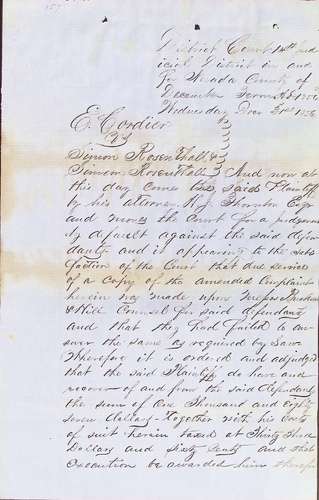 157
District Court 14th Jud
icial District in and
For Nevada County of
December Term AD 1856
Wednesday Dec 31st 1856
E. Cordier
vs
Simon Rosenthall &
Rosenthall And now at
this day comes the said Plaintiff
by his attorney Thornton Esqr
and moves the Court for a judgement
by default against the said defen
dants and it appearing to the satis
faction of the Court that due service
of a copy of the amended Complaint
herein was made upon Messrs
& Hill Counsel for said defendants
and that they had failed to an
swer the same as required by Law
Wherefore it is ordered and adjudged
that the said Plaintiff do have and
recover of and from the said defendants
the sum of One Thousand and eighty
seven dollars together with his costs
of suit herein taxed at Thirty Three
Dollars and Sixty Cents and that
execution be awarded him therefor